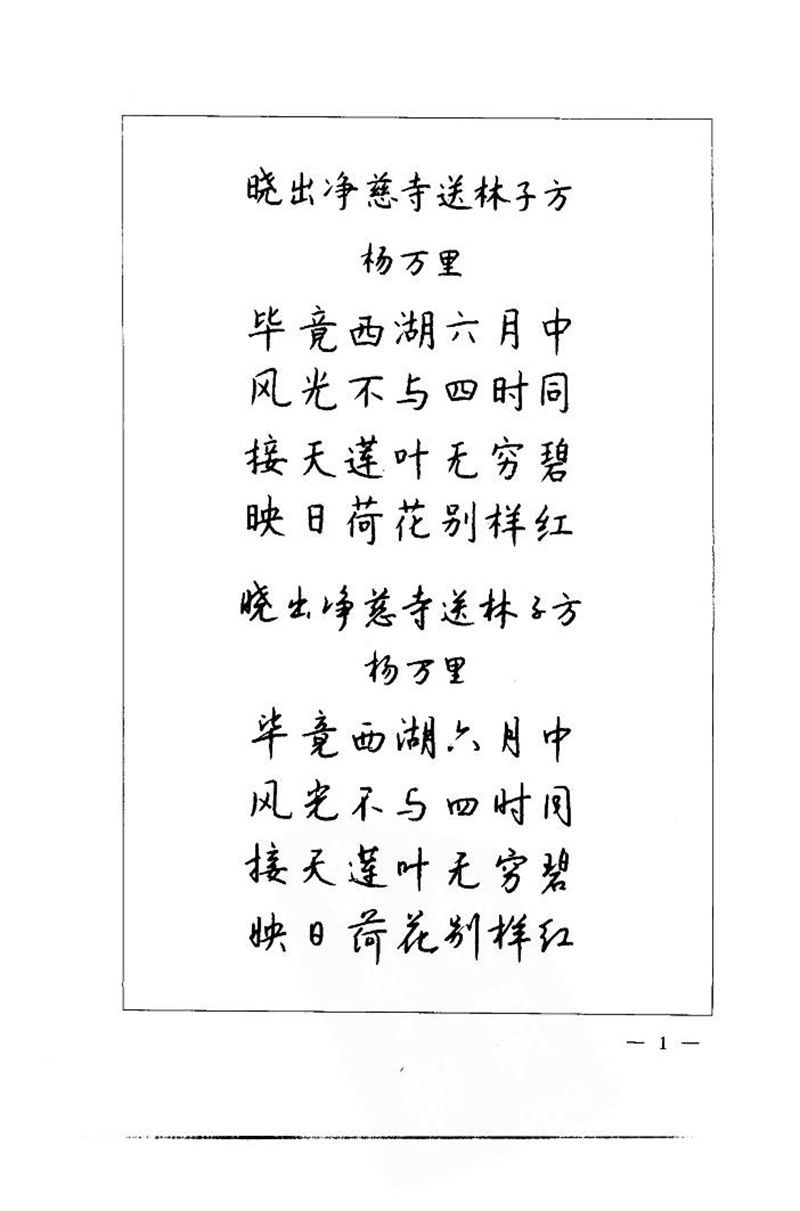 晓出净慈寺送林子方
杨万里
毕竟西湖六月中
风光不与四时同
接天莲叶无穷碧
映日荷花别样红
晓出净慈寺送林子方
杨万里
毕竟西湖六月中
风光不与四时同
接天莲叶无穷碧
映日荷花别样红
— 1 —